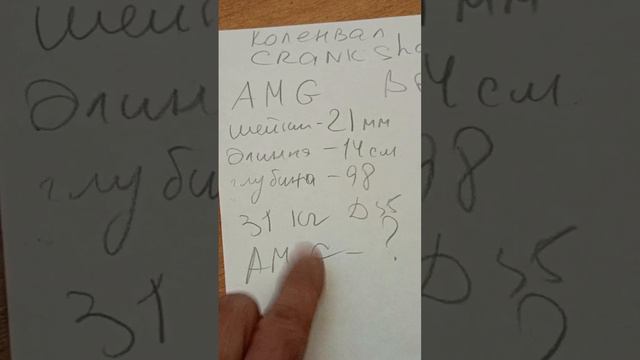 коленвал
CRANKSha
AMG
шейки-21мм
длинна-14см
глубина-98
31 кг D55
AMG-?